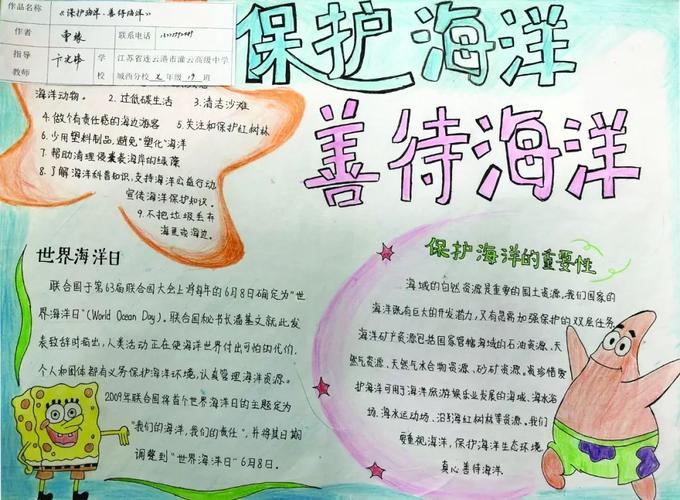 作品名称 《保护海洋、善待海洋》
作者 联系电话
指导教师 学校 江苏省连云港市灌云高级中学城西分校 年级 19 班
保护海洋
善待海洋
海洋动物。 2. 过低碳生活 3. 清洁沙滩
4. 做个有责任感的海边游客 5. 关注和保护红树林
6. 少用塑料制品,避免"塑化"海洋
7. 帮助清理侵袭海岸的绿藻
8. 了解海洋科普知识,支持海洋公益行动,
宣传海洋保护知识。
9. 不把垃圾丢弃
海里或海边。
世界海洋日
联合国于第63届联合国大会上将每年的6月8日确定为"世
界海洋日"(World Ocean Day)。联合国秘书长潘基文就此发
表致辞时指出,人类活动正在使海洋世界付出可怕的代价,
个人和团体都有义务保护海洋环境,认真管理海洋资源。
2009年联合国将首个世界海洋日的主题定为
"我们的海洋,我们的责任",并将其日期
调整到"世界海洋日"6月8日。
保护海洋的重要性
海域的自然资源是重要的国土资源。我们国家的
海洋既有巨大的开发潜力,又有是需加强保护的双层任务
海洋矿产资源包括国家管辖海域的石油资源、天
然气资源、天然气水合物资源、砂矿资源。我珍惜爱
护海洋可用于海洋旅游娱乐业发展的海域,海水浴
场、海水运动场、沿海红树林等资源。我们
要重视海洋,保护海洋生态环境
真心善待海洋.